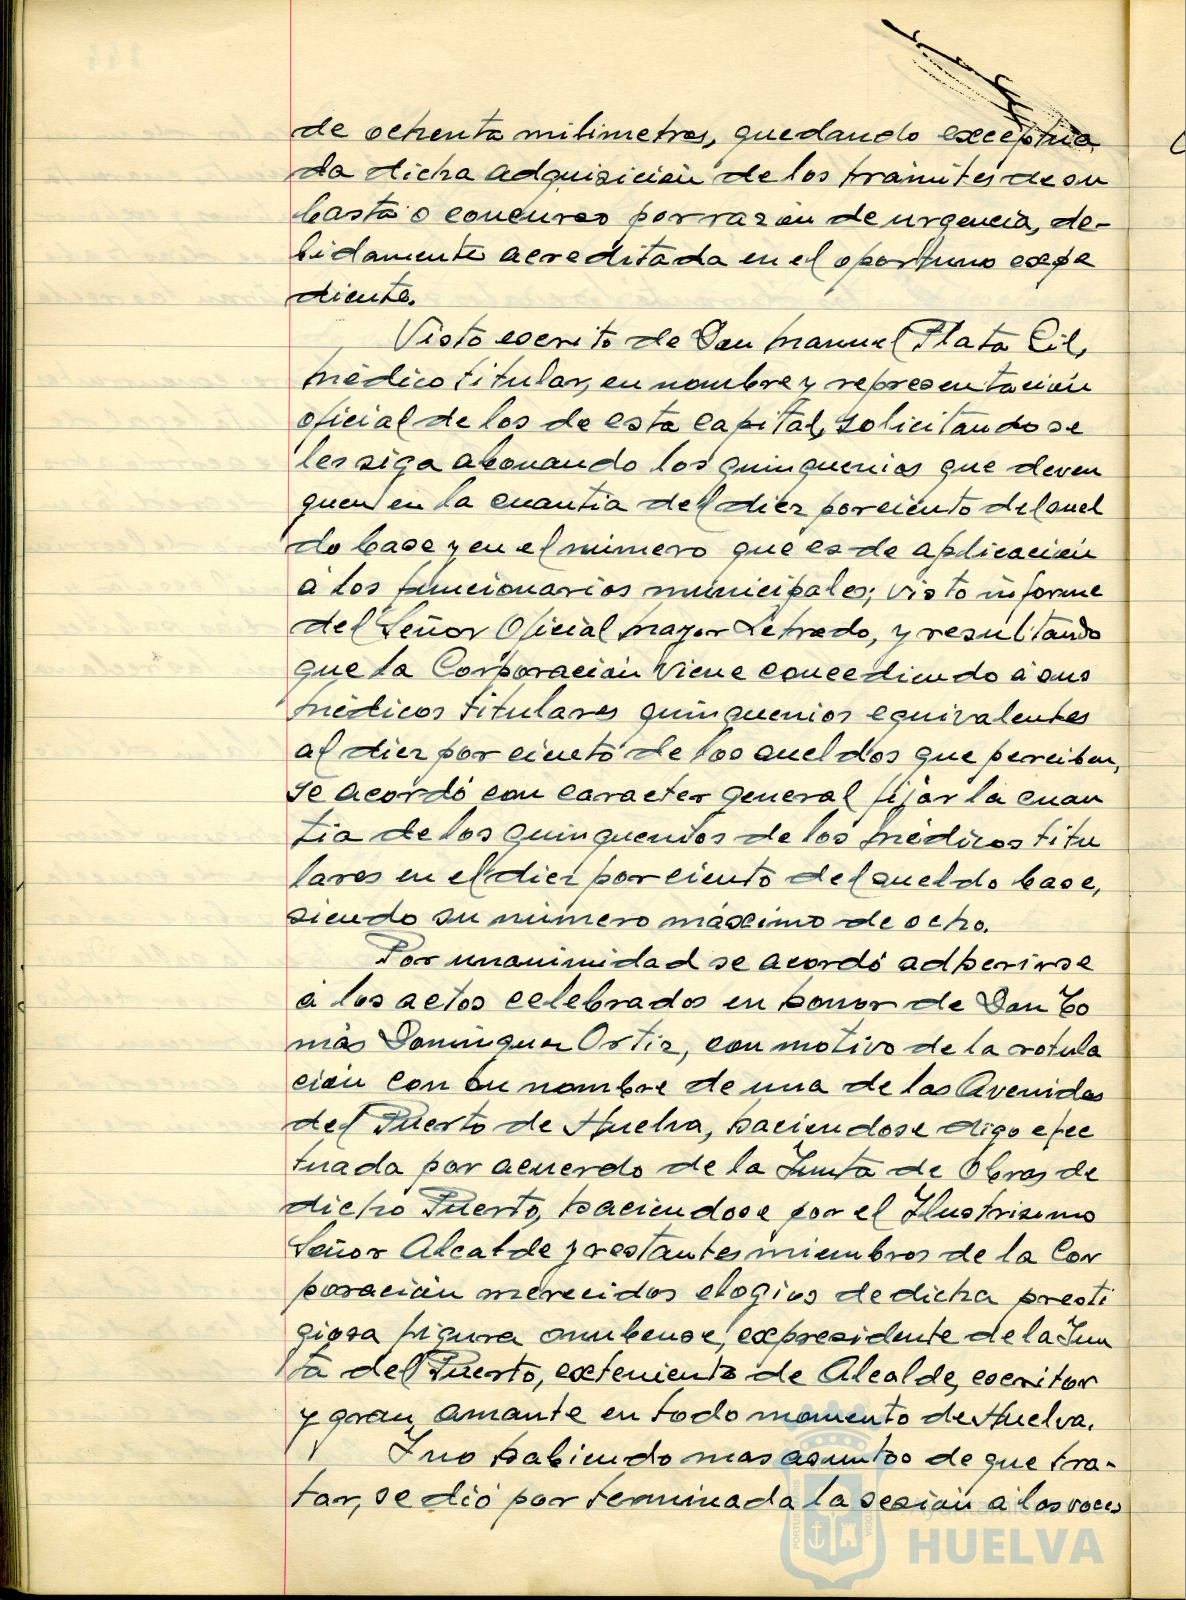 de ochenta milimetros, quedando exceptua
da dicha adquisición de los trámites de su
basta o concurso por razón de urgencia, de-
bidamente acreditada en el oportuno expe
diente.
Visto escrito de Don Manuel Plata Gil,
Médico titular, en nombre y representación
oficial de los de esta Capital, solicitando se
les siga abonando los quinquenios que deven
guen en la cuantia del diez por ciento del suel
do base y en el número que es de aplicación
á los funcionarios municipales; visto informe
del Señor Oficial Mayor Letrado, y resultando
que la Corporación viene concediendo á sus
Médicos titulares quinquenios equivalentes
al diez por ciento de los sueldos que perciben,
se acordó con caracter general fijar la cuan
tia de los quinquenios de los Médicos titu
lares en el diez por ciento del sueldo base,
siendo su número máximo de ocho.
Por unanimidad se acordó adherirse
á los actos celebrados en honor de Don To
más Dominguez Ortiz, con motivo de la rotula
ción con su nombre de una de las Avenidas
del Puerto de Huelva, haciendose digo efec
tuada por acuerdo de la Junta de Obras de
dicho Puerto, haciendose por el Ilustrisimo
Señor Alcalde y restantes miembros de la Cor
poración merecidos elogios de dicha presti
giosa figura onubense, expresidente de la Jun
ta del Puerto, exteniente de Alcalde, escritor
y gran amante en todo momento de Huelva.
Y no habiendo mas asuntos de que tra-
tar, se dió por terminada la sesión á las voces
Ayuntamiento de
HUELVA